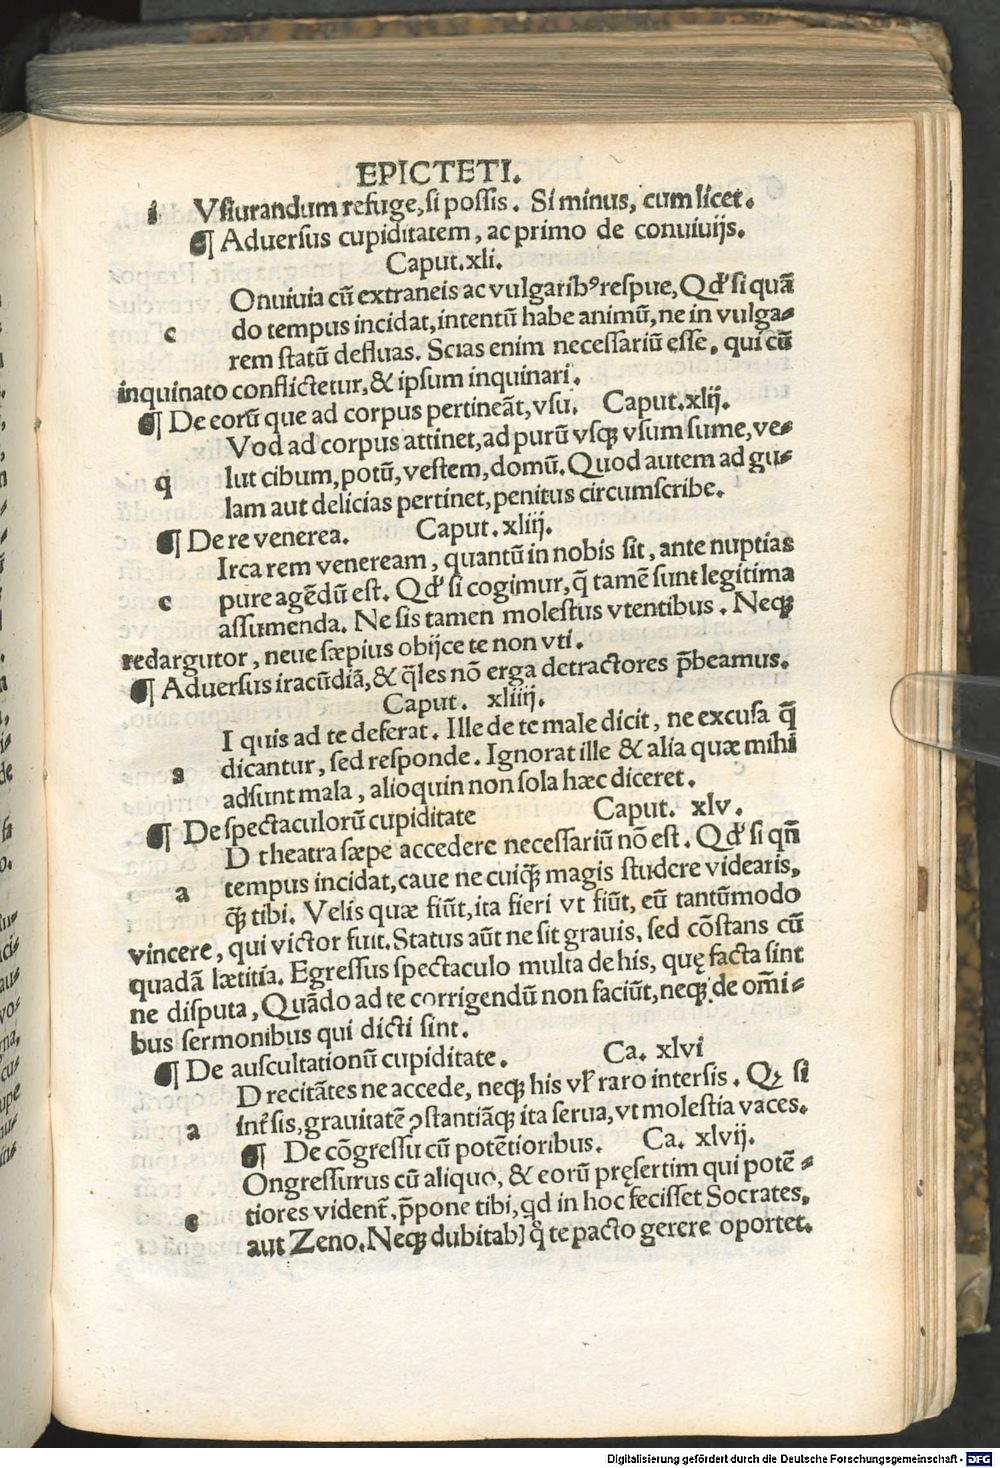 EPICTETI.
i Vsiurandum refuge, si possis. Si minus, cum licet.
¶ Aduersus cupiditatem, ac primo de conuiuijs.
Caput.xli.
Onuiuia cũ extraneis ac vulgarib⁹ respue, Qd' si quã
c do tempus incidat, intentũ habe animũ, ne in vulga-
rem statũ defluas. Scias enim necessariũ esse, qui cũ
inquinato conflictetur, & ipsum inquinari.
¶ De eorũ que ad corpus pertineãt, vsu. Caput.xlij.
Vod ad corpus attinet, ad purũ vsqꝫ vsum sume, ve-
q lut cibum, potũ, vestem, domũ. Quod autem ad gu-
lam aut delicias pertinet, penitus circumscribe.
¶ De re venerea. Caput.xliij.
Irca rem veneream, quantũ in nobis sit, ante nuptias
c pure agẽdũ est. Qd' si cogimur, q̃ tamẽ sunt legitima
assumenda. Ne sis tamen molestus vtentibus. Neqꝫ
redargutor, neue sæpius obijce te non vti.
¶ Aduersus iracũdiã, & q̃les nõ erga detractores p̃beamus.
Caput. xliiij.
I quis ad te deferat. Ille de te male dicit, ne excusa q̃
s dicantur, sed responde. Ignorat ille & alia quæ mihi
adsunt mala, alioquin non sola hæc diceret.
¶ De spectaculorũ cupiditate Caput. xlv.
D theatra sæpe accedere necessariũ nõ est. Qd' si qñ
a tempus incidat, caue ne cuiq̃ꝫ magis studere videaris,
q̃ꝫ tibi. Velis quæ fiũt, ita fieri vt fiũt, eũ tantũmodo
vincere, qui victor fuit. Status aũt ne sit grauis, sed cõstans cũ
quadã lætitia. Egressus spectaculo multa de his, quę facta sint
ne disputa, Quãdo ad te corrigendũ non faciũt, neqꝫ de om̃i-
bus sermonibus qui dicti sint.
¶ De auscultationũ cupiditate. Ca. xlvi
D recitãtes ne accede, neqꝫ his vl' raro intersis. Qꝫ si
a int̃sis, grauitatẽ ꝯstantiãqꝫ ita serua, vt molestia vaces.
¶ De cõgressu cũ potẽtioribus. Ca. xlvij.
Ongressurus cũ aliquo, & eorũ pręsertim qui potẽ-
c tiores vident̃, p̃pone tibi, qd in hoc fecisset Socrates,
aut Zeno. Neqꝫ dubitab] q̊ te pacto gerere oportet.
Digitalisierung gefördert durch die Deutsche Forschungsgemeinschaft - DFG